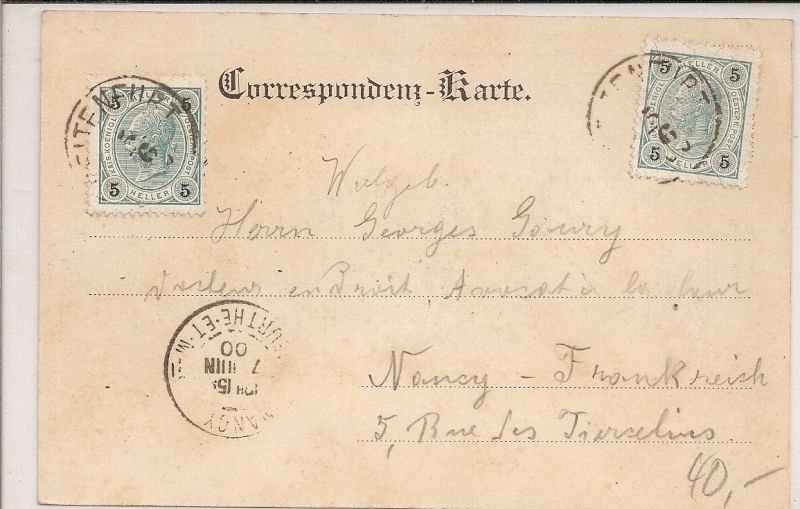 Correspondenz-Karte.
5 5
KAIS. KOENIGL. OESTERR. POST.
5 HELLER 5
5 5
KAIS. KOENIGL. OESTERR. POST.
5 HELLER 5
Wolgeb.
Herrn Georges Goury
Docteur en Droit, Avocat à la Cour
Nancy - Frankreich
5, Rue des Tiercelins.
NANCY
15
7 JUIN
00
MEURTHE-ET-M
40,-